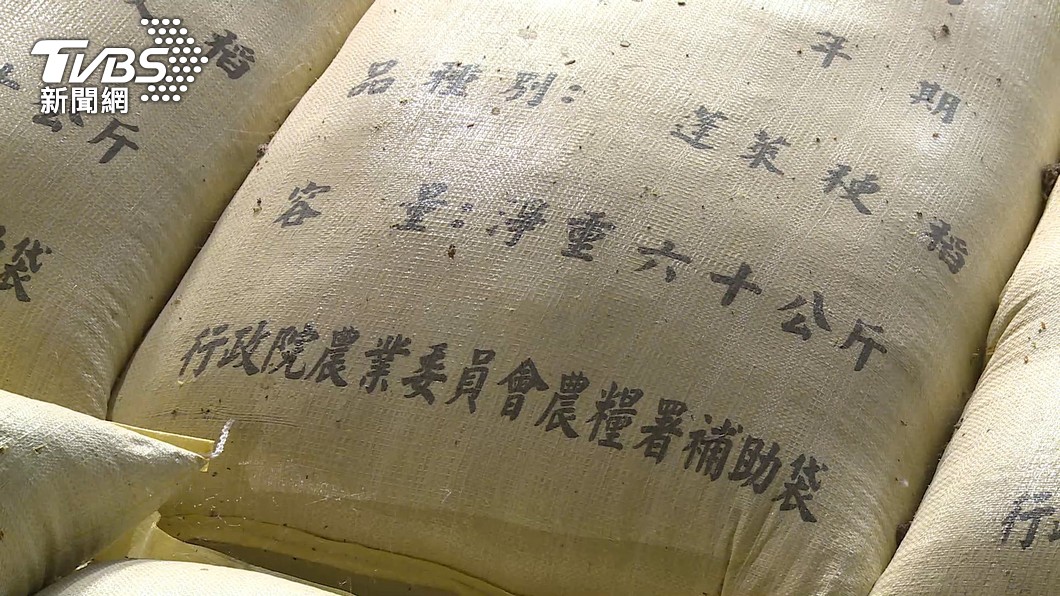 TVBS
新聞網
稻
公斤
袋
年 期
品種別: 蓬萊梗稻
容 量:淨重六十公斤
行政院農業委員會農糧署補助袋
行